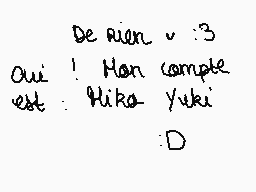 De rien v :3
Oui ! Mon compte
est : Mika Yuki
:D